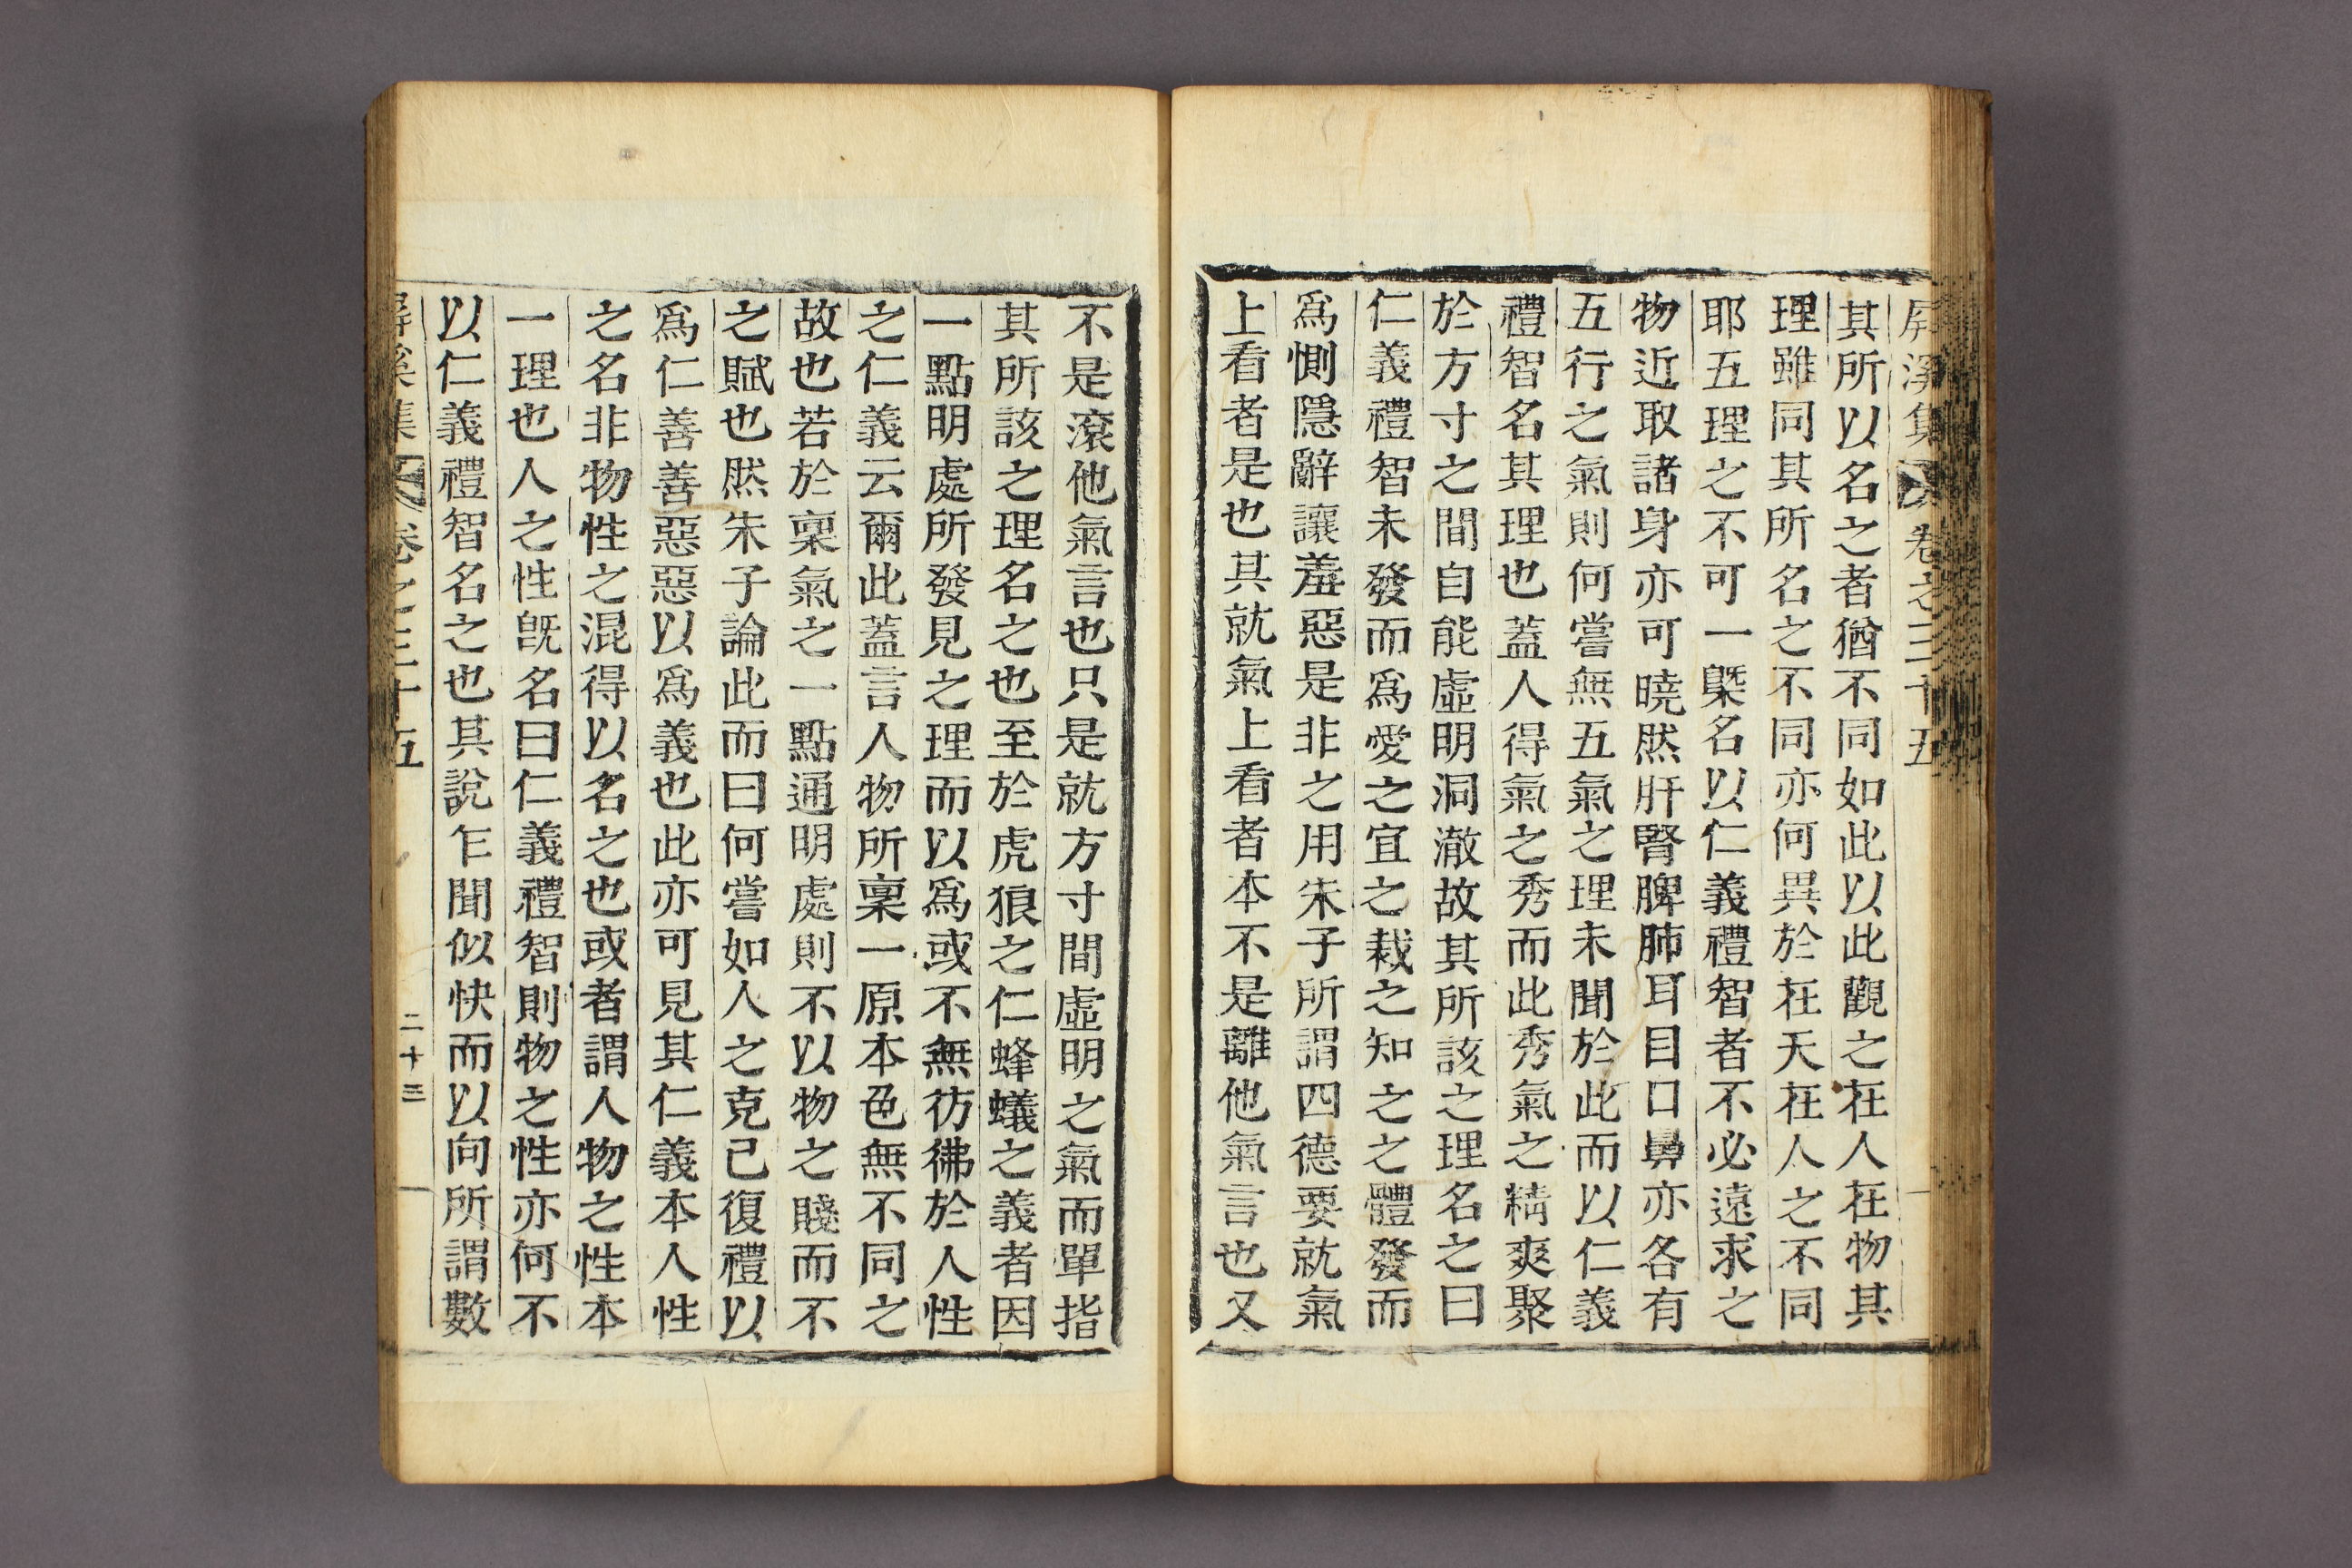 屏溪集 卷之三十五
其所以名之者猶不同如此以此觀之在人在物其
理雖同其所名之不同亦何異於在天在人之不同
耶五理之不可一槩名以仁義禮智者不必遠求之
物近取諸身亦可曉然肝腎脾肺耳目口鼻亦各有
五行之氣則何嘗無五氣之理未聞於此而以仁義
禮智名其理也蓋人得氣之秀而此秀氣之精爽聚
於方寸之間自能虛明洞澈故其所該之理名之曰
仁義禮智未發而爲愛之宜之裁之知之之體發而
爲惻隱辭讓羞惡是非之用朱子所謂四德要就氣
上看者是也其就氣上看者本不是離他氣言也又
不是滾他氣言也只是就方寸間虛明之氣而單指
其所該之理名之也至於虎狼之仁蜂蟻之義者因
一點明處所發見之理而以爲或不無彷彿於人性
之仁義云爾此蓋言人物所稟一原本色無不同之
故也若於稟氣之一點通明處則不以物之賤而不
之賦也然朱子論此而曰何嘗如人之克己復禮以
爲仁善善惡惡以爲義也此亦可見其仁義本人性
之名非物性之混得以名之也或者謂人物之性本
一理也人之性旣名曰仁義禮智則物之性亦何不
以仁義禮智名之也其說乍聞似快而以向所謂數
屏溪集 卷之三十五 二十三